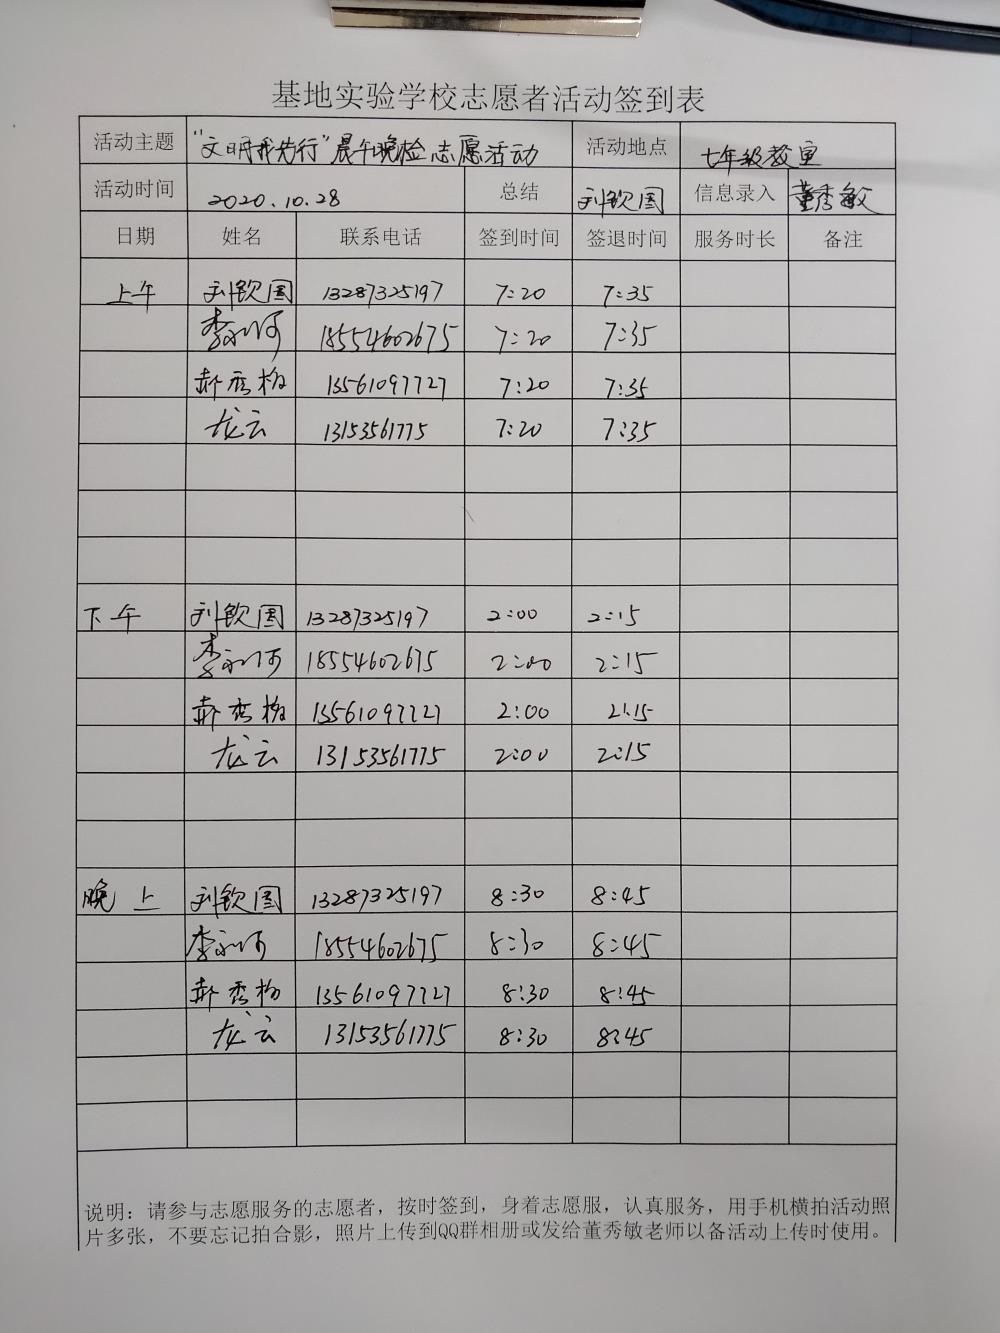 基地实验学校志愿者活动签到表
活动主题 "文明我先行"晨午晚检志愿活动 活动地点 七年级教室
活动时间 2020.10.28 总结 刘钦国 信息录入 董秀敏
日期 姓名 联系电话 签到时间 签退时间 服务时长 备注
上午 刘钦国 13287325197 7:20 7:35
李永河 18554602675 7:20 7:35
郝秀梅 13561097727 7:20 7:35
龙云 13153561775 7:20 7:35
下午 刘钦国 13287325197 2:00 2:15
李永河 18554602675 2:00 2:15
郝秀梅 13561097727 2:00 2:15
龙云 13153561775 2:00 2:15
晚上 刘钦国 13287325197 8:30 8:45
李永河 18554602675 8:30 8:45
郝秀梅 13561097727 8:30 8:45
龙云 13153561775 8:30 8:45
说明：请参与志愿服务的志愿者，按时签到，身着志愿服，认真服务，用手机横拍活动照
片多张，不要忘记拍合影，照片上传到QQ群相册或发给董秀敏老师以备活动上传时使用。